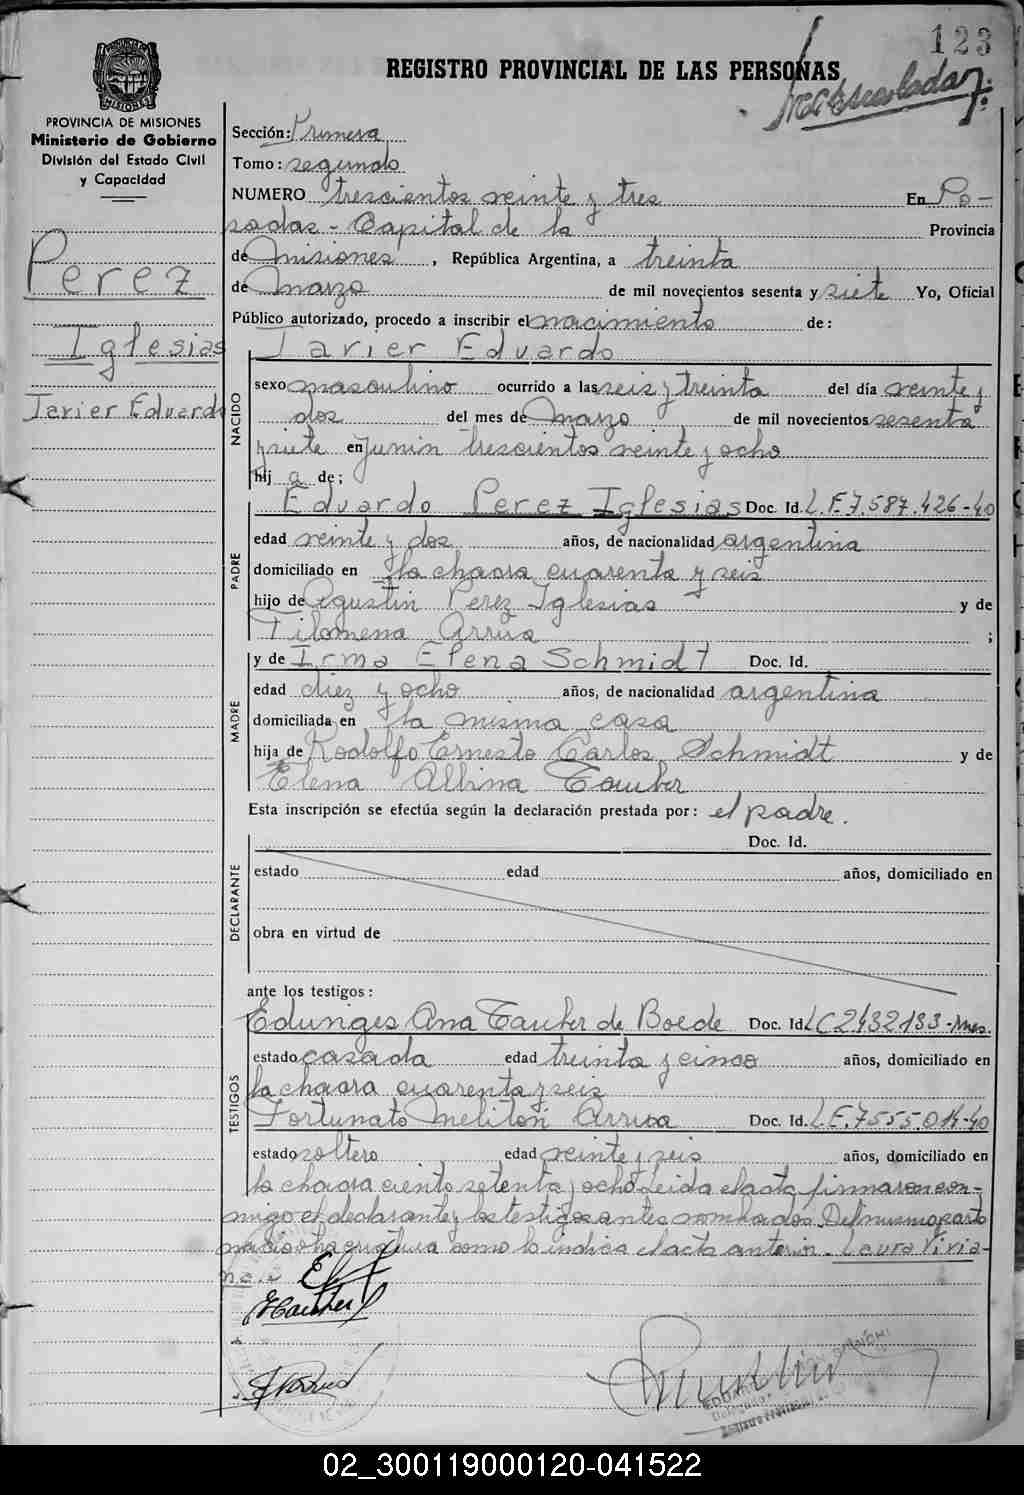 123
REGISTRO PROVINCIAL DE LAS PERSONAS
PROVINCIA DE MISIONES
Ministerio de Gobierno
División del Estado Civil
y Capacidad
Perez
Iglesias
Javier Eduardo
Sección: Primera
Tomo: segundo
NUMERO trescientos veinte y tres En Po-
sadas - Capital de la Provincia
de Misiones, República Argentina, a treinta
de Marzo de mil novecientos sesenta y siete Yo, Oficial
Público autorizado, procedo a inscribir el nacimiento de:
Javier Eduardo
NACIDO
sexo masculino ocurrido a las seis y treinta del día veinte y
dos del mes de Marzo de mil novecientos sesenta
y siete en Junin trescientos veinte y ocho
hij a de;
PADRE
Eduardo Perez Iglesias Doc. Id. L.E.7.587.426-40
edad veinte y dos años, de nacionalidad argentina
domiciliado en la chacra cuarenta y seis
hijo de Agustin Perez Iglesias y de
Filomena Arrua ;
MADRE
y de Irma Elena Schmidt Doc. Id.
edad diez y ocho años, de nacionalidad argentina
domiciliada en la misma casa
hija de Rodolfo Ernesto Carlos Schmidt y de
Elena Albina Tauber
Esta inscripción se efectúa según la declaración prestada por: el padre.
DECLARANTE
Doc. Id.
estado edad años, domiciliado en
obra en virtud de
ante los testigos:
TESTIGOS
Edunges Ana Tauber de Boede Doc. Id. LC2432133-Mnes.
estado casada edad treinta y cinco años, domiciliado en
la chacra cuarenta y seis
Fortunato Meliton Arrua Doc. Id. L.E.7555.014-40
estado soltero edad veinte y seis años, domiciliado en
la chacra ciento setenta y ocho Leida el acta firmaron con-
migo el declarante y los testigos antes nombrados. Del mismo parto
nacio otra criatura como lo indica el acta anterior. Laura Vivia-
na.
02_300119000120-041522